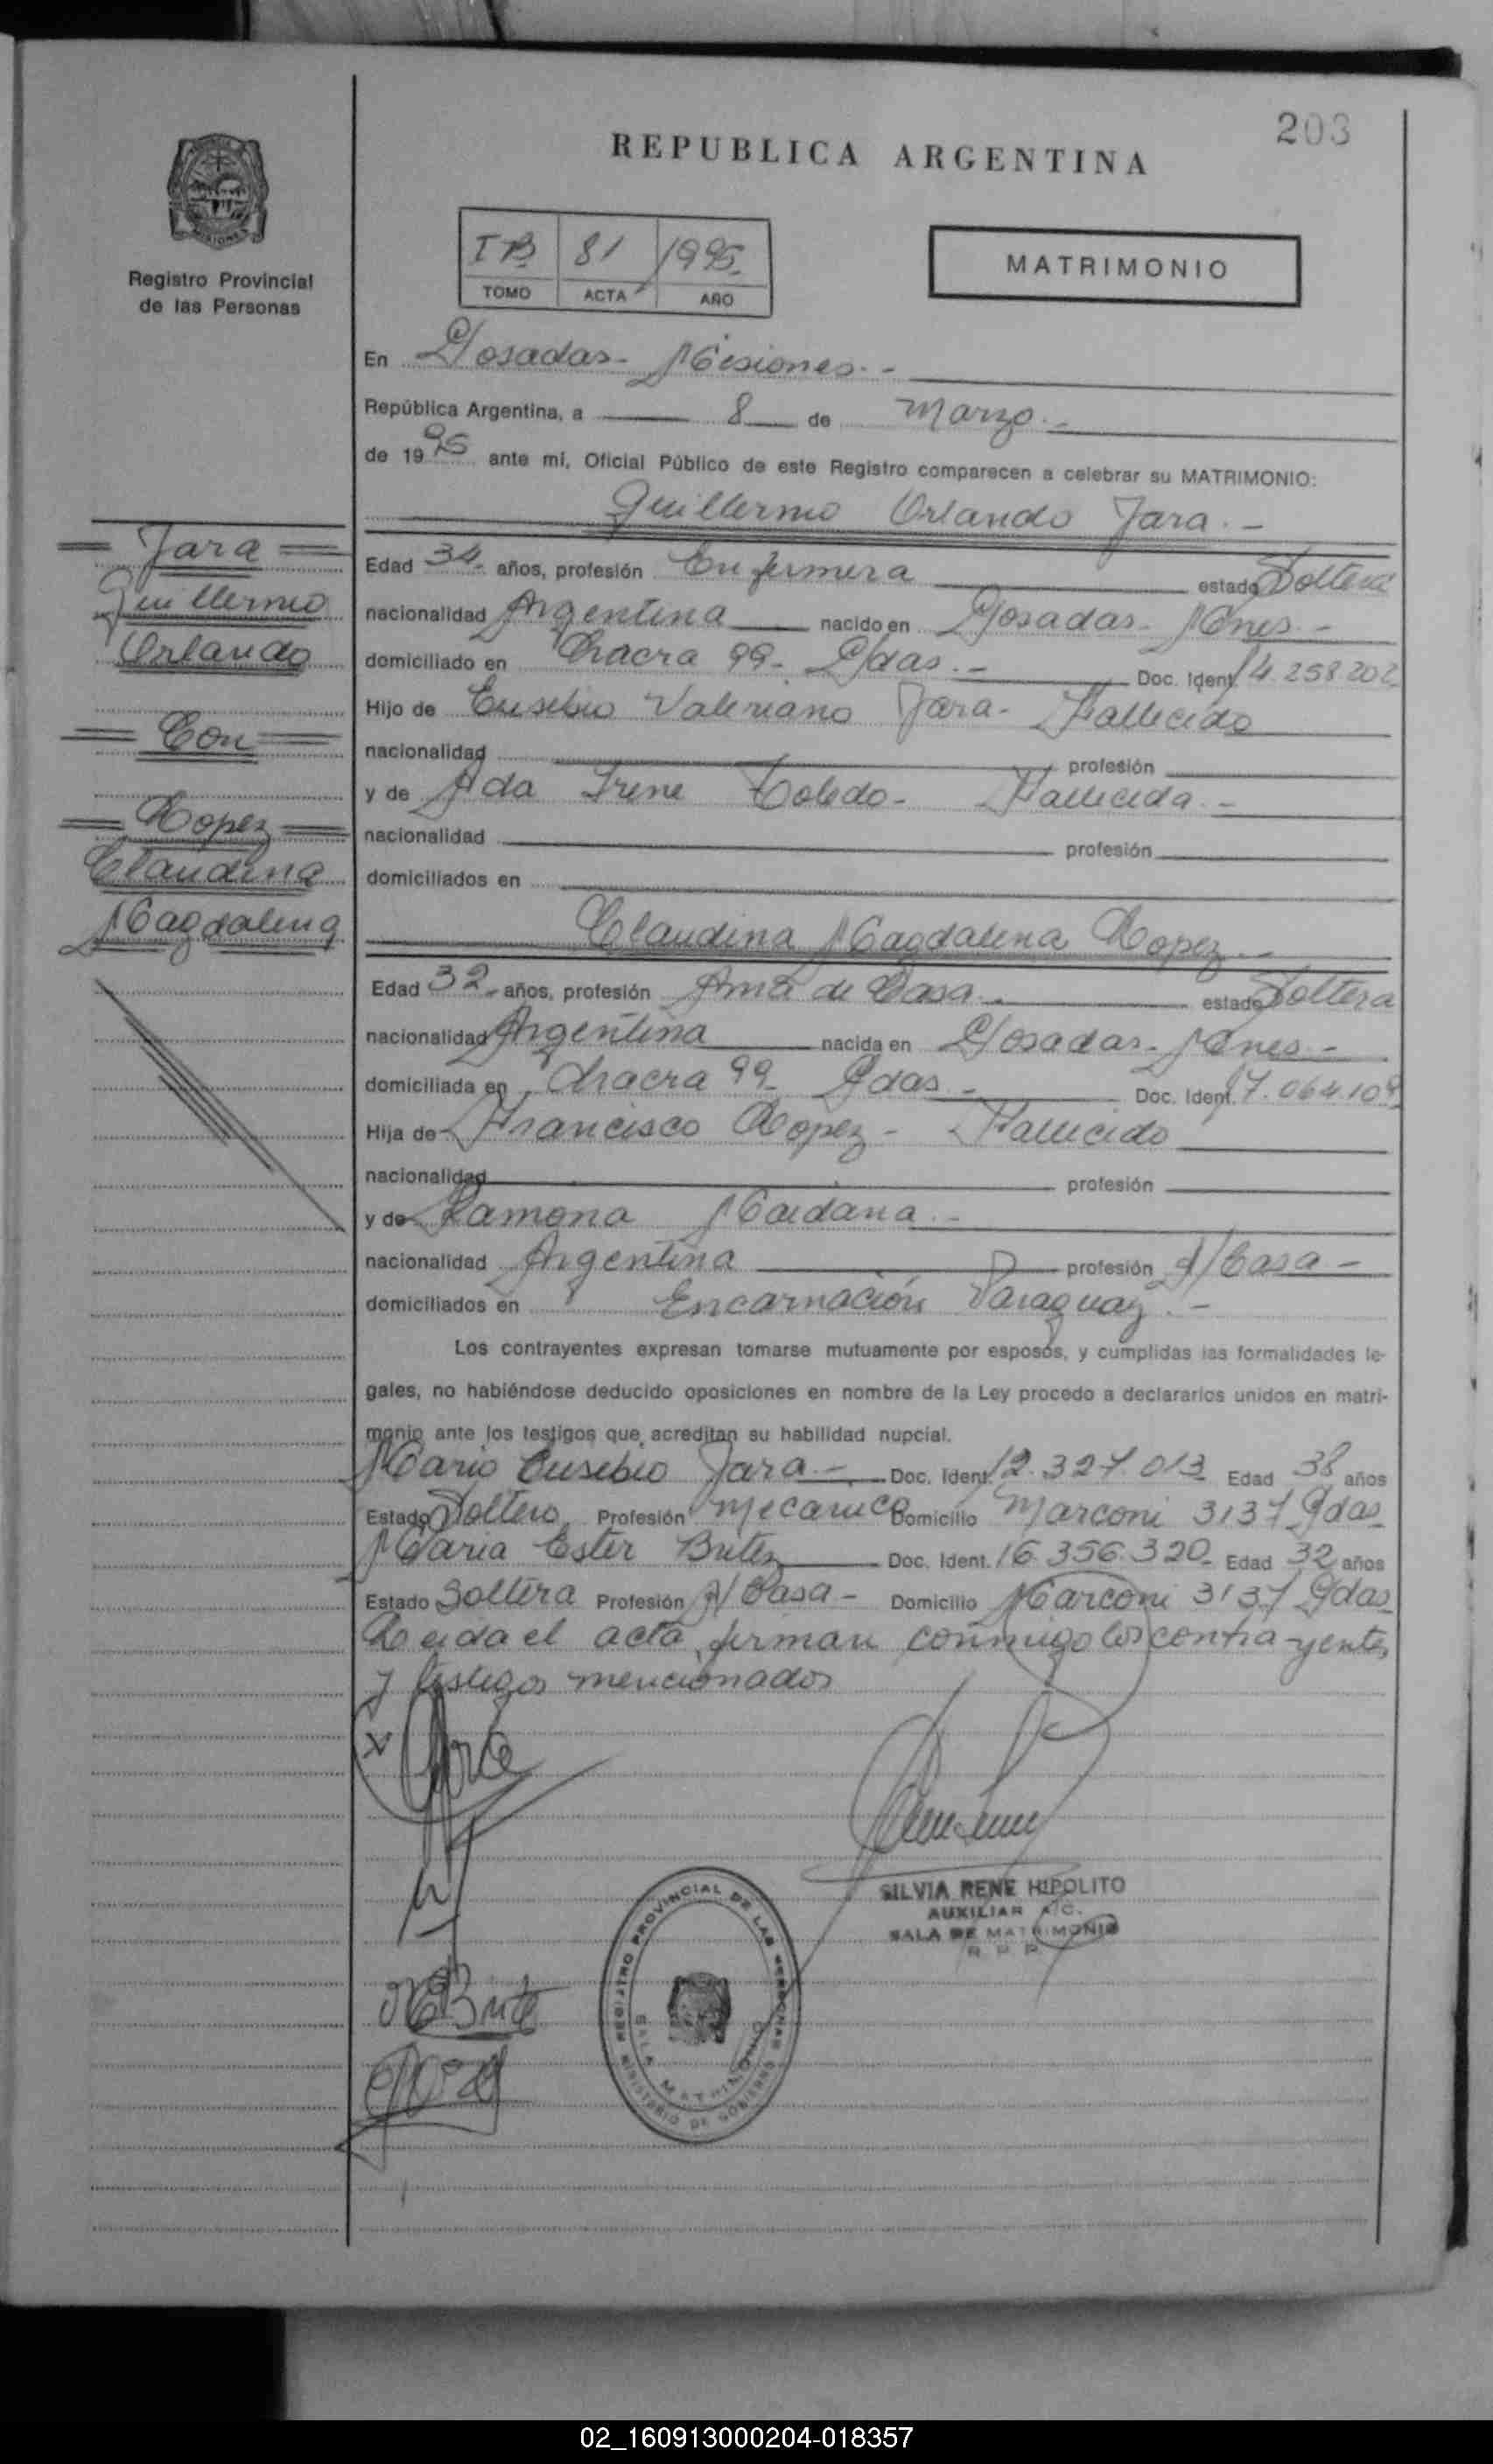 203
REPUBLICA ARGENTINA
Registro Provincial
de las Personas
IB 81 1995
TOMO ACTA AÑO
MATRIMONIO
En Posadas - Misiones. -
República Argentina, a 8 de Marzo. -
de 1995 ante mi, Oficial Público de este Registro comparecen a celebrar su MATRIMONIO:
Guillermo Orlando Jara. -
Edad 34 años, profesión Enfermera estado Soltero
nacionalidad Argentina nacido en Posadas - Mnes. -
domiciliado en Chacra 99 - Pdas. - Doc. Ident. 14.258.202
Hijo de Eusebio Valeriano Jara - Fallecido
nacionalidad profesión
y de Ada Irene Toledo - Fallecida. -
nacionalidad profesión
domiciliados en
Claudina Magdalena Lopez. -
Edad 32 años, profesión Ama de Casa. estado Soltera
nacionalidad Argentina nacida en Posadas - Mnes. -
domiciliada en Chacra 99 - Pdas. - Doc. Ident. 17.064.109
Hija de Francisco Lopez - Fallecido
nacionalidad profesión
y de Ramona Maidana. -
nacionalidad Argentina profesión A/Casa -
domiciliados en Encarnación Paraguay. -
Los contrayentes expresan tomarse mutuamente por esposos, y cumplidas las formalidades le-
gales, no habiéndose deducido oposiciones en nombre de la Ley procedo a declararlos unidos en matri-
monio ante los testigos que acreditan su habilidad nupcial.
Mario Eusebio Jara - Doc. Ident. 12.327.013 Edad 38 años
Estado Soltero Profesión Mecanico Domicilio Marconi 3137 Pdas
Maria Ester Britez Doc. Ident. 16.356.320 Edad 32 años
Estado Soltera Profesión A/Casa - Domicilio Marconi 3137 Pdas
Leida el acta firman conmigo los contra-yentes
y testigos mencionados
Jara
Guillermo
Orlando
Con
Lopez
Claudina
Magdalena
SILVIA RENE HIPOLITO
AUXILIAR A/C.
SALA DE MATRIMONIO
R. P. P.
REGISTRO PROVINCIAL DE LAS PERSONAS
SALA MATRIMONIO
MINISTERIO DE GOBIERNO
02_160913000204-018357